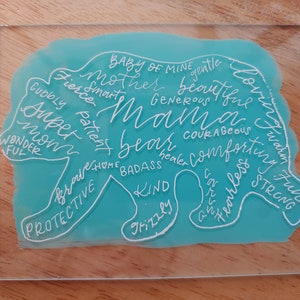 BABY OF MINE
gentle
smart
mother
beautiful
Fierce
Cuddly
GENEROUS
Loving
Super
mom
Patient
Mama
COURAGEOUS
WONDERFUL
bear
healer
Comforting
Brave
HOME
BADASS
KIND
Fearless
STRONG
PROTECTIVE
Grizzly